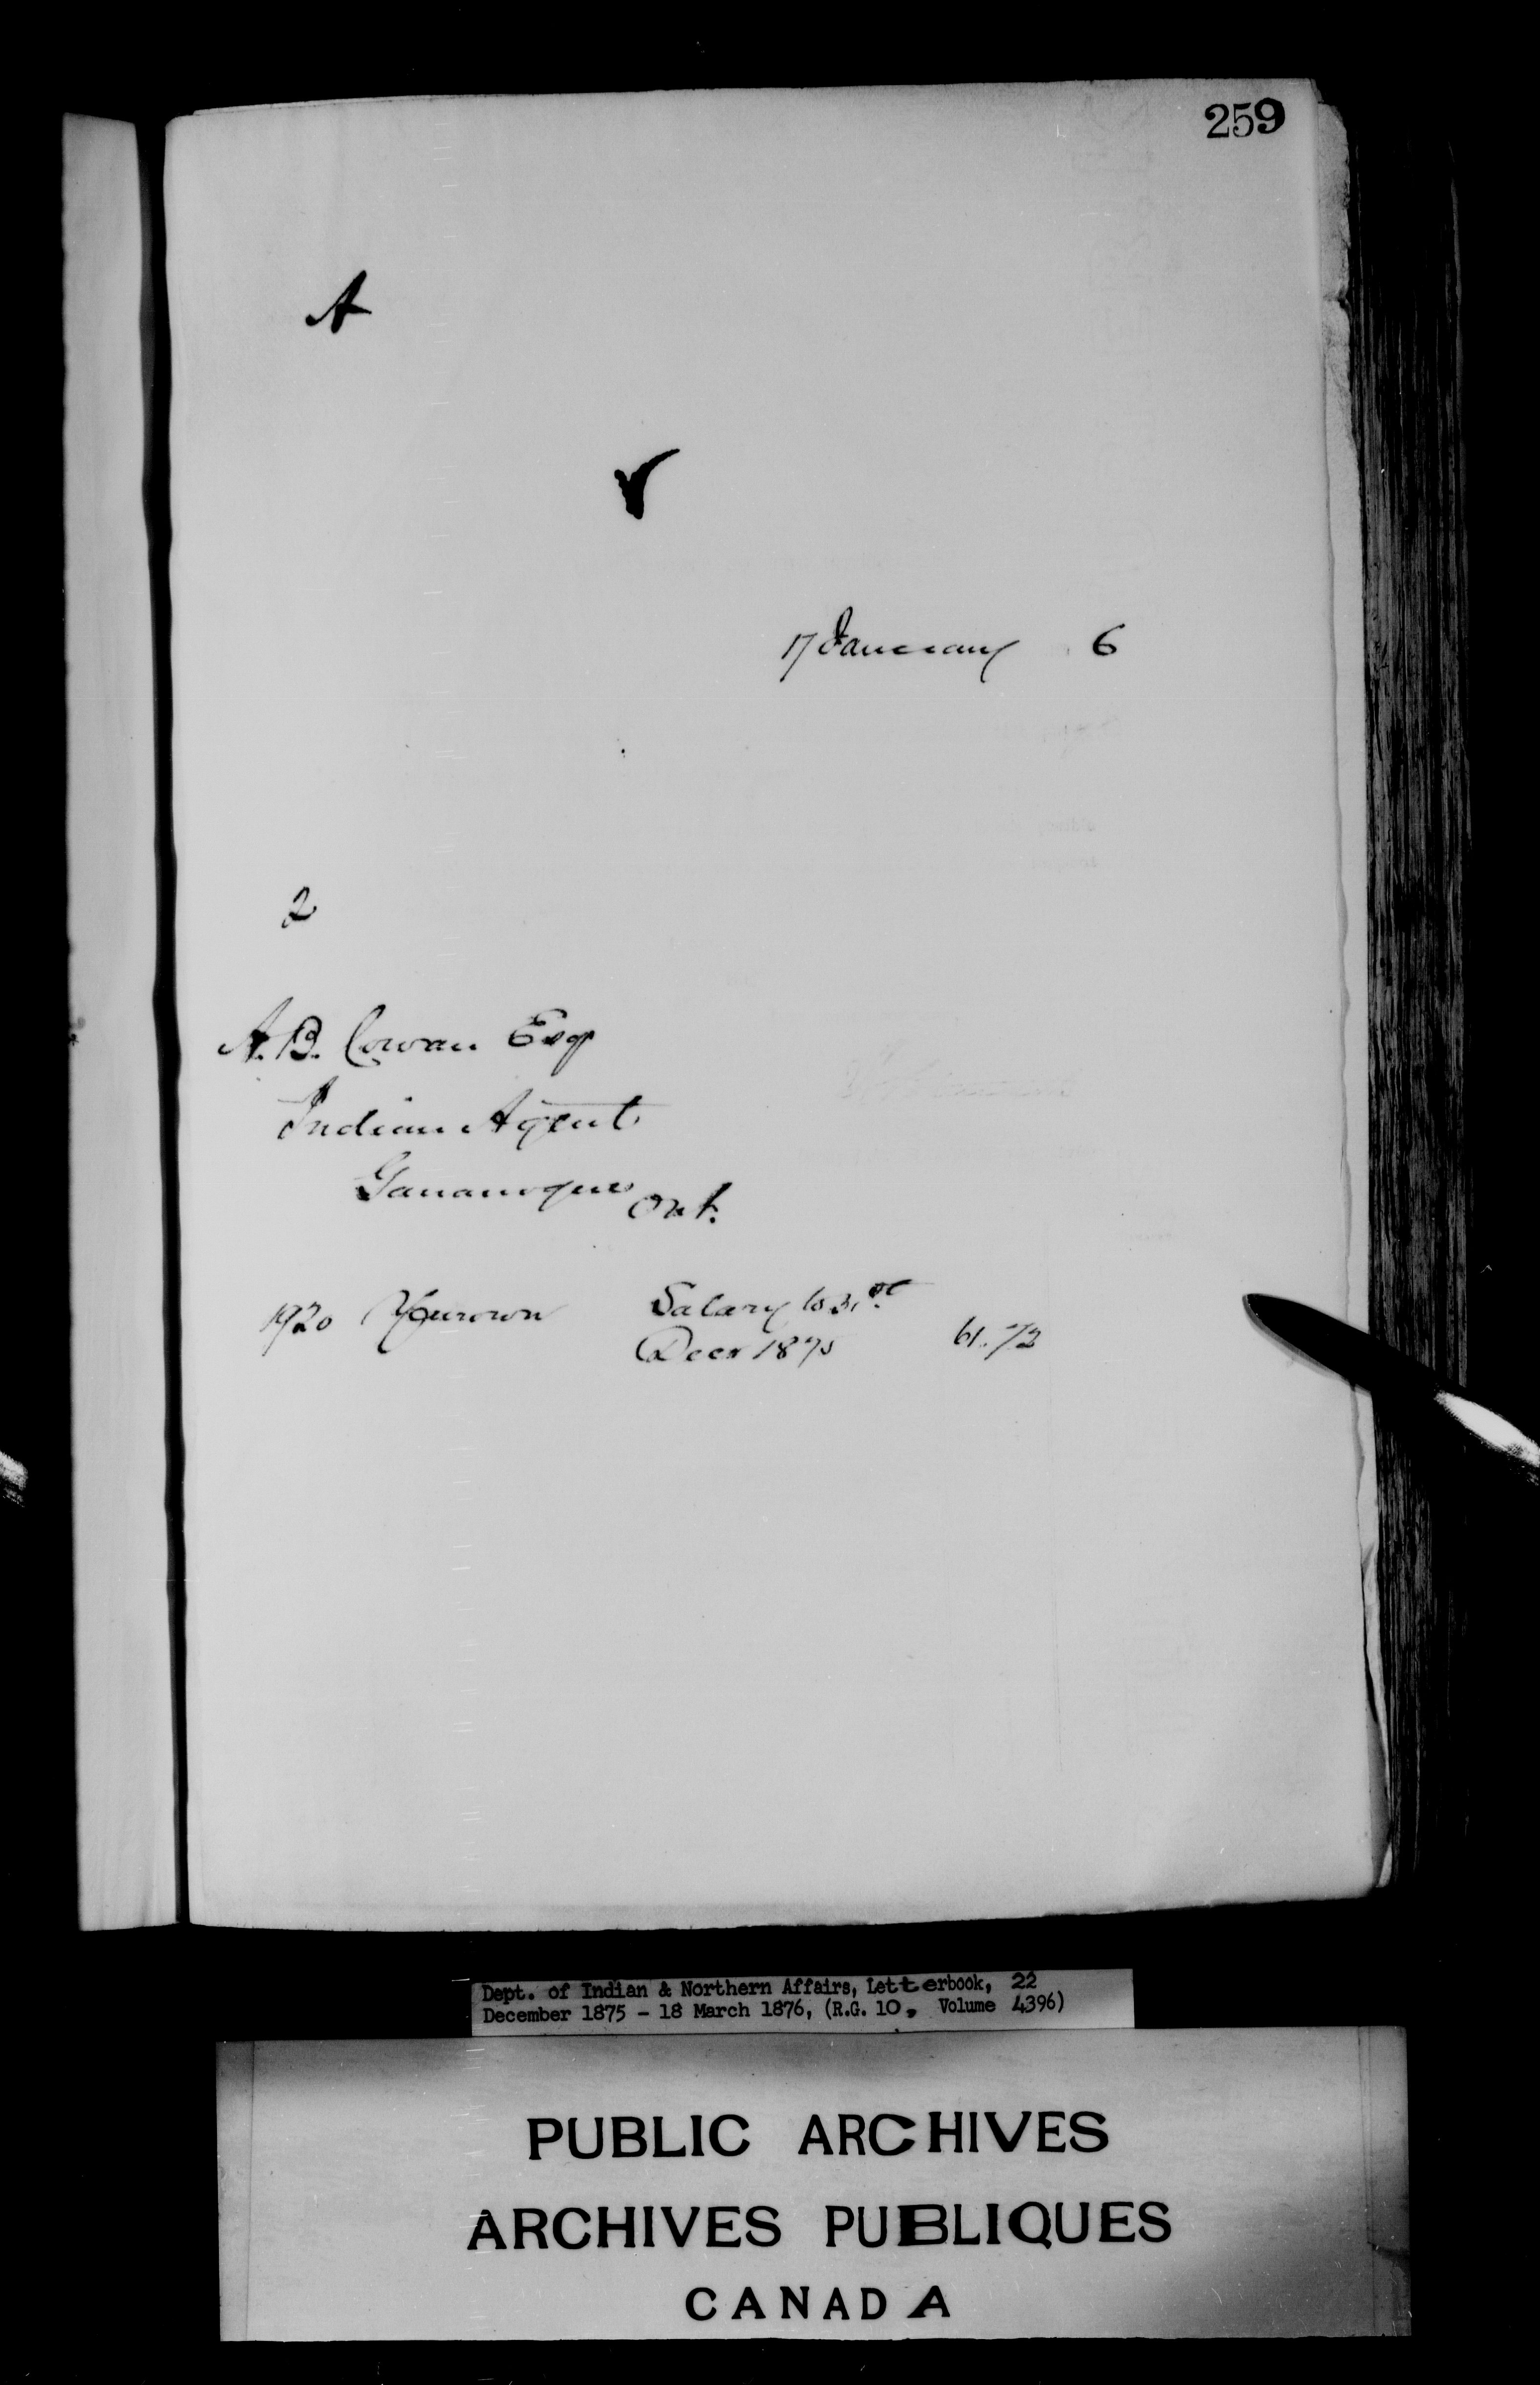 259
A
17 January 6
2
A. B. Cowan Esqr
Indian Agent
Gananoque Ont.
1920 Yourown Salary to 31st
Decr 1875 61.72
Dept. of Indian & Northern Affairs, Letterbook, 22
December 1875 - 18 March 1876, (R.G. 10, Volume 4396)
PUBLIC ARCHIVES
ARCHIVES PUBLIQUES
CANADA